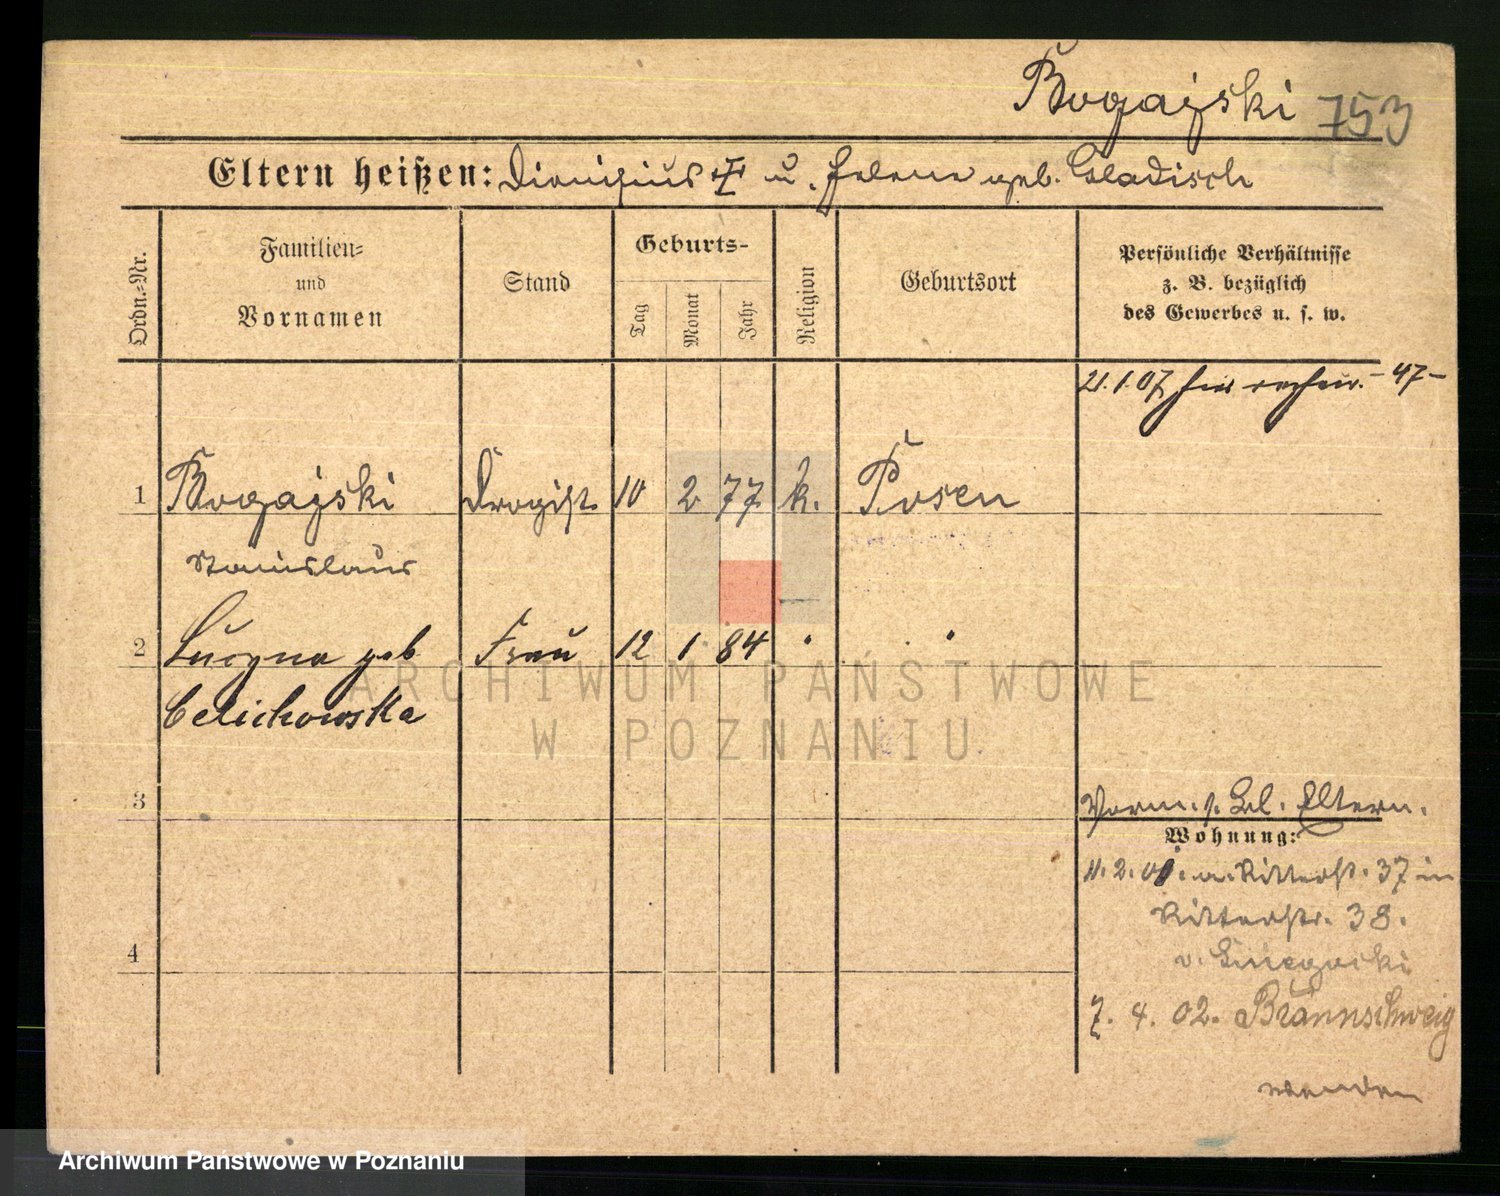 Bogajski 753
Eltern heißen: Dionisius † u. Helene geb. Gladisch
Ordn.-Nr.
Familien-
und
Vornamen
Stand
Geburts-
Tag
Monat
Jahr
Religion
Geburtsort
Persönliche Verhältnisse
z. B. bezüglich
des Gewerbes u. s. w.
21.1.07 hier -47-
1 Bogajski Drogist 10 2 77 k. Posen
Stanislaus
2 Lucyna geb Frau 12 1 84 " "
Celichowska
3
Vorm. s. Bl. Eltern.
Wohnung:
v. Ritterst. 37 in
Ritterstr. 38.
4
7. 4. 02. Braunschweig
wenden
ARCHIWUM PAŃSTWOWE
W POZNANIU
Archiwum Państwowe w Poznaniu